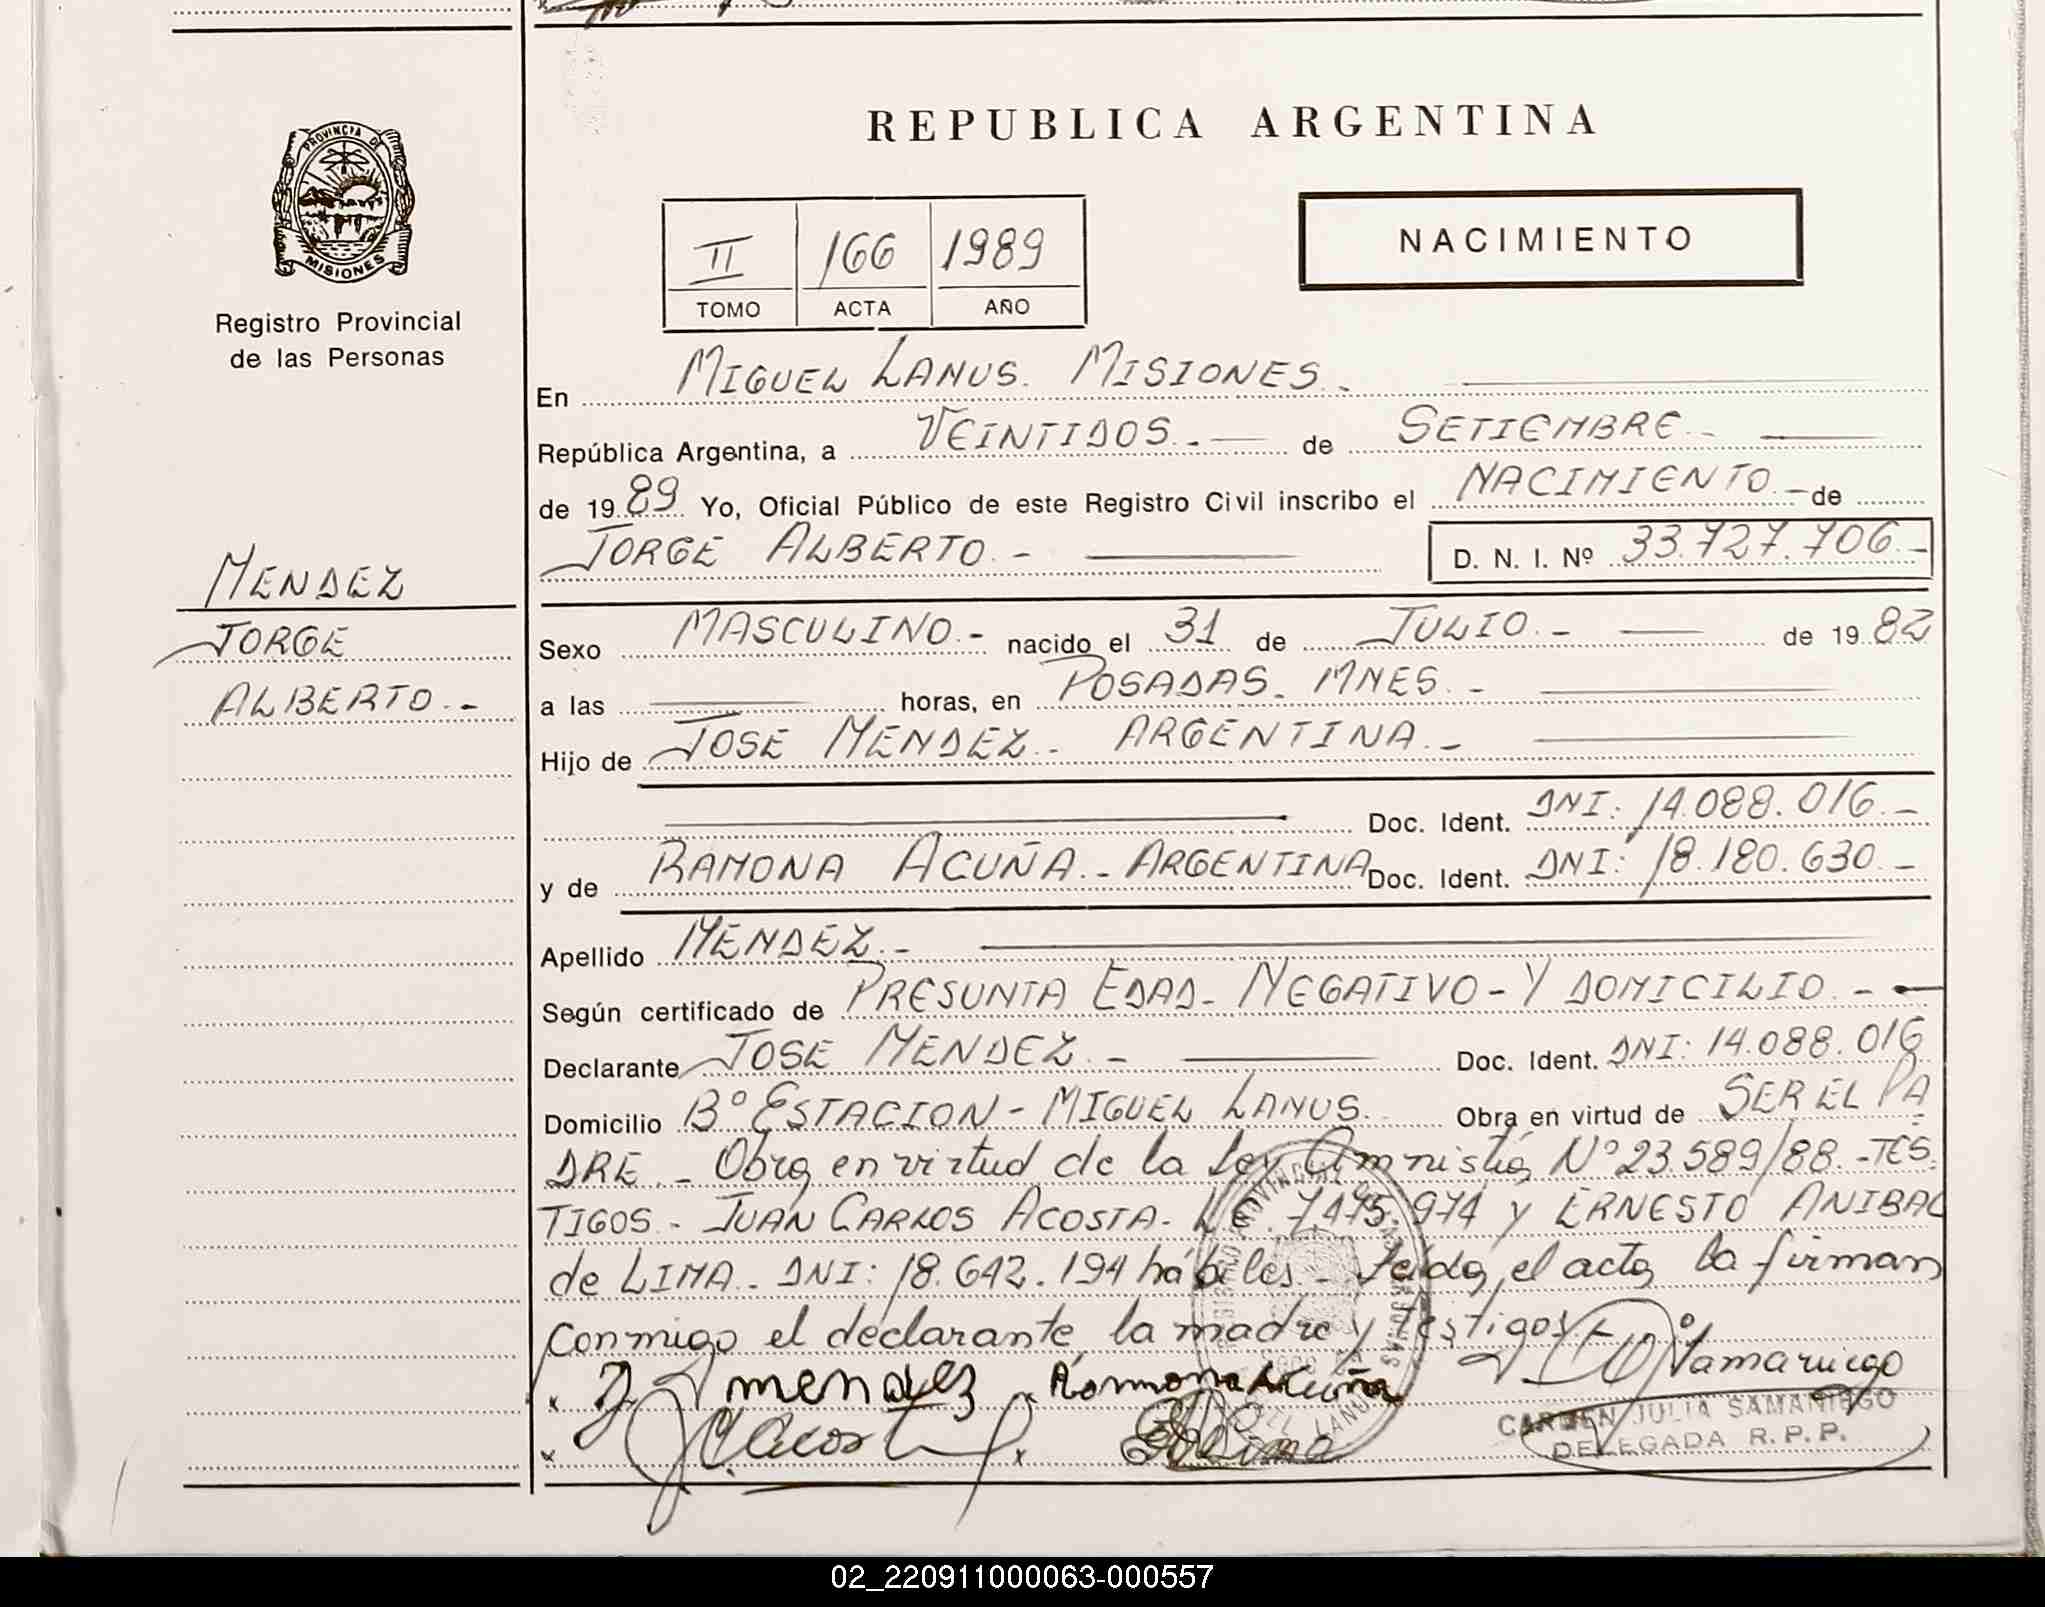 PROVINCIA DE
MISIONES
Registro Provincial
de las Personas
MENDEZ
JORGE
ALBERTO.-
REPUBLICA ARGENTINA
II 166 1989
TOMO ACTA AÑO
NACIMIENTO
En MIGUEL LANUS. MISIONES.-
República Argentina, a VEINTIDOS.- de SETIEMBRE.-
de 1989 Yo, Oficial Público de este Registro Civil inscribo el NACIMIENTO.- de
JORGE ALBERTO.- D. N. I. Nº 33.727.706.-
Sexo MASCULINO.- nacido el 31 de JULIO.- de 1982
a las horas, en POSADAS. MNES.-
Hijo de JOSE MENDEZ.- ARGENTINA.-
Doc. Ident. DNI: 14.088.016.-
y de RAMONA ACUÑA.- ARGENTINA Doc. Ident. DNI: 18.180.630.-
Apellido MENDEZ.-
Según certificado de PRESUNTA EDAD- NEGATIVO- Y DOMICILIO.-
Declarante JOSE MENDEZ.- Doc. Ident. DNI: 14.088.016
Domicilio Bº ESTACION - MIGUEL LANUS. Obra en virtud de SER EL PA
DRE.- Obra en virtud de la Ley Amnistia Nº 23.589/88.-TES.
TIGOS.- JUAN CARLOS ACOSTA- LE. 7475.974 y ERNESTO ANIBAL
de LIMA.- DNI: 18.642.194 hábiles.- Leida el acta la firman
conmigo el declarante, la madre y testigos.-
J mendez Ramona Acuña
CARMEN JULIA SAMANIEGO
DELEGADA R. P. P.
02_220911000063-000557